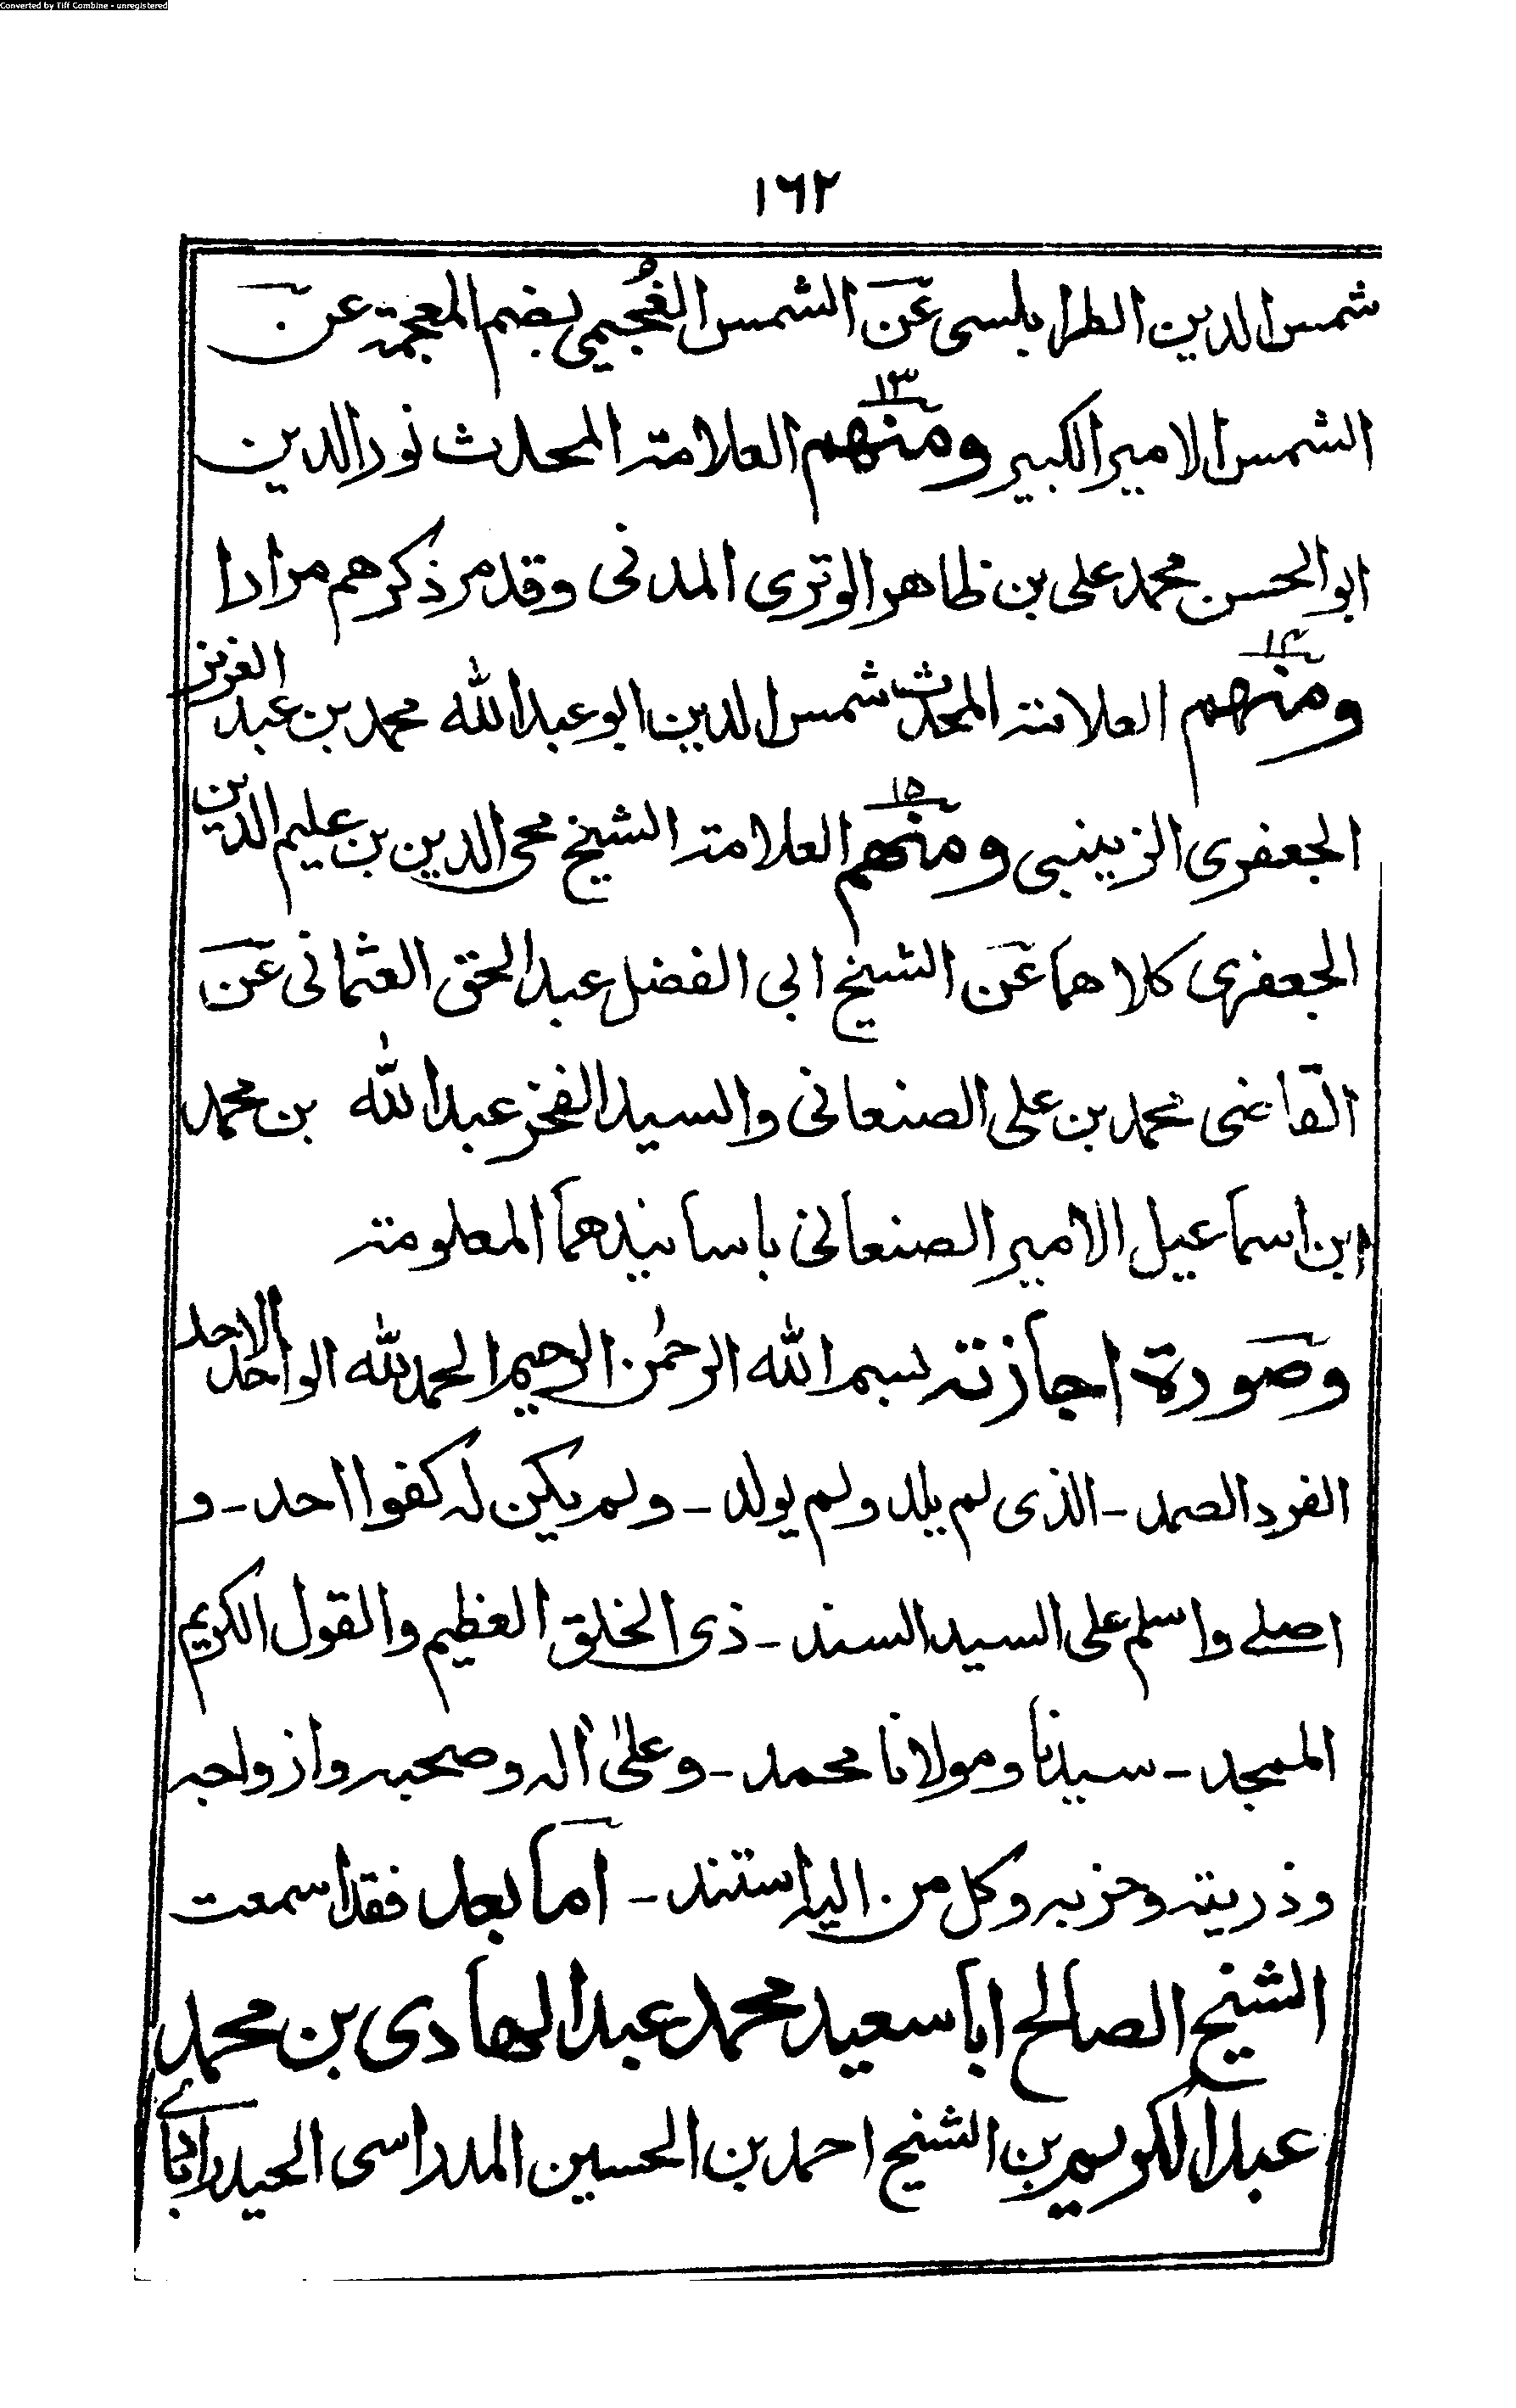 Converted by Tiff Combine - unregistered
١٦٢
شمس الدين الطرابلسى عن الشمس الغُجيمي بضم المعجمة عن
الشمس الامير الكبير ومنهم ١٣ العلامة المحدث نور الدين
ابو الحسن محمد على بن ظاهر الوترى المدنى وقد مر ذكرهم مرارا
ومنهم ١٤ العلامة المحدث شمس الدين ابو عبد الله محمد بن عبد العزيز
الجعفرى الزينبى ومنهم ١٥ العلامة الشيخ محى الدين بن عليم الدين
الجعفرى كلاهما عن الشيخ ابى الفضل عبد الحق العثمانى عن
القاضى محمد بن على الصنعانى والسيد الفخر عبد الله بن محمد
ابن اسماعيل الامير الصنعانى باسانيدهما المعلومة
وصورة اجازته بسم الله الرحمٰن الرحيم الحمد لله الواحد الاحد
الفرد الصمد - الذى لم يلد ولم يولد - ولم يكن له كفوا احد - و
اصلے واسلم على السيد السند - ذى الخلق العظيم والقول الكريم
الممجد - سيدنا ومولانا محمد - وعلىٰ اٰله وصحبه وازواجه
وذريته وحزبه وكل من اليه استند - اما بعد فقد اسمعت
الشيخ الصالح ابا سعيد محمد عبد الهادى بن محمد
عبد الكريم بن الشيخ احمد بن الحسين المدراسى الحيدرابادے